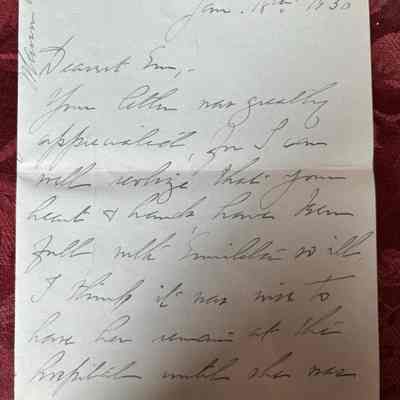 Jan. 18th 1930
Dearest Em,-
Your letter was greatly
appreciated, for I can
well realize that your
heart & hands have been
full with so ill
I think it was wise to
have her remain at the
hospital until she was